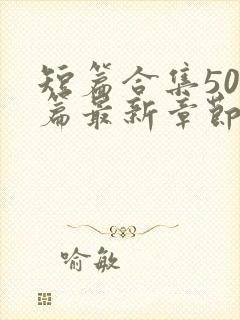 短篇合集50
篇最新章节
喻敏